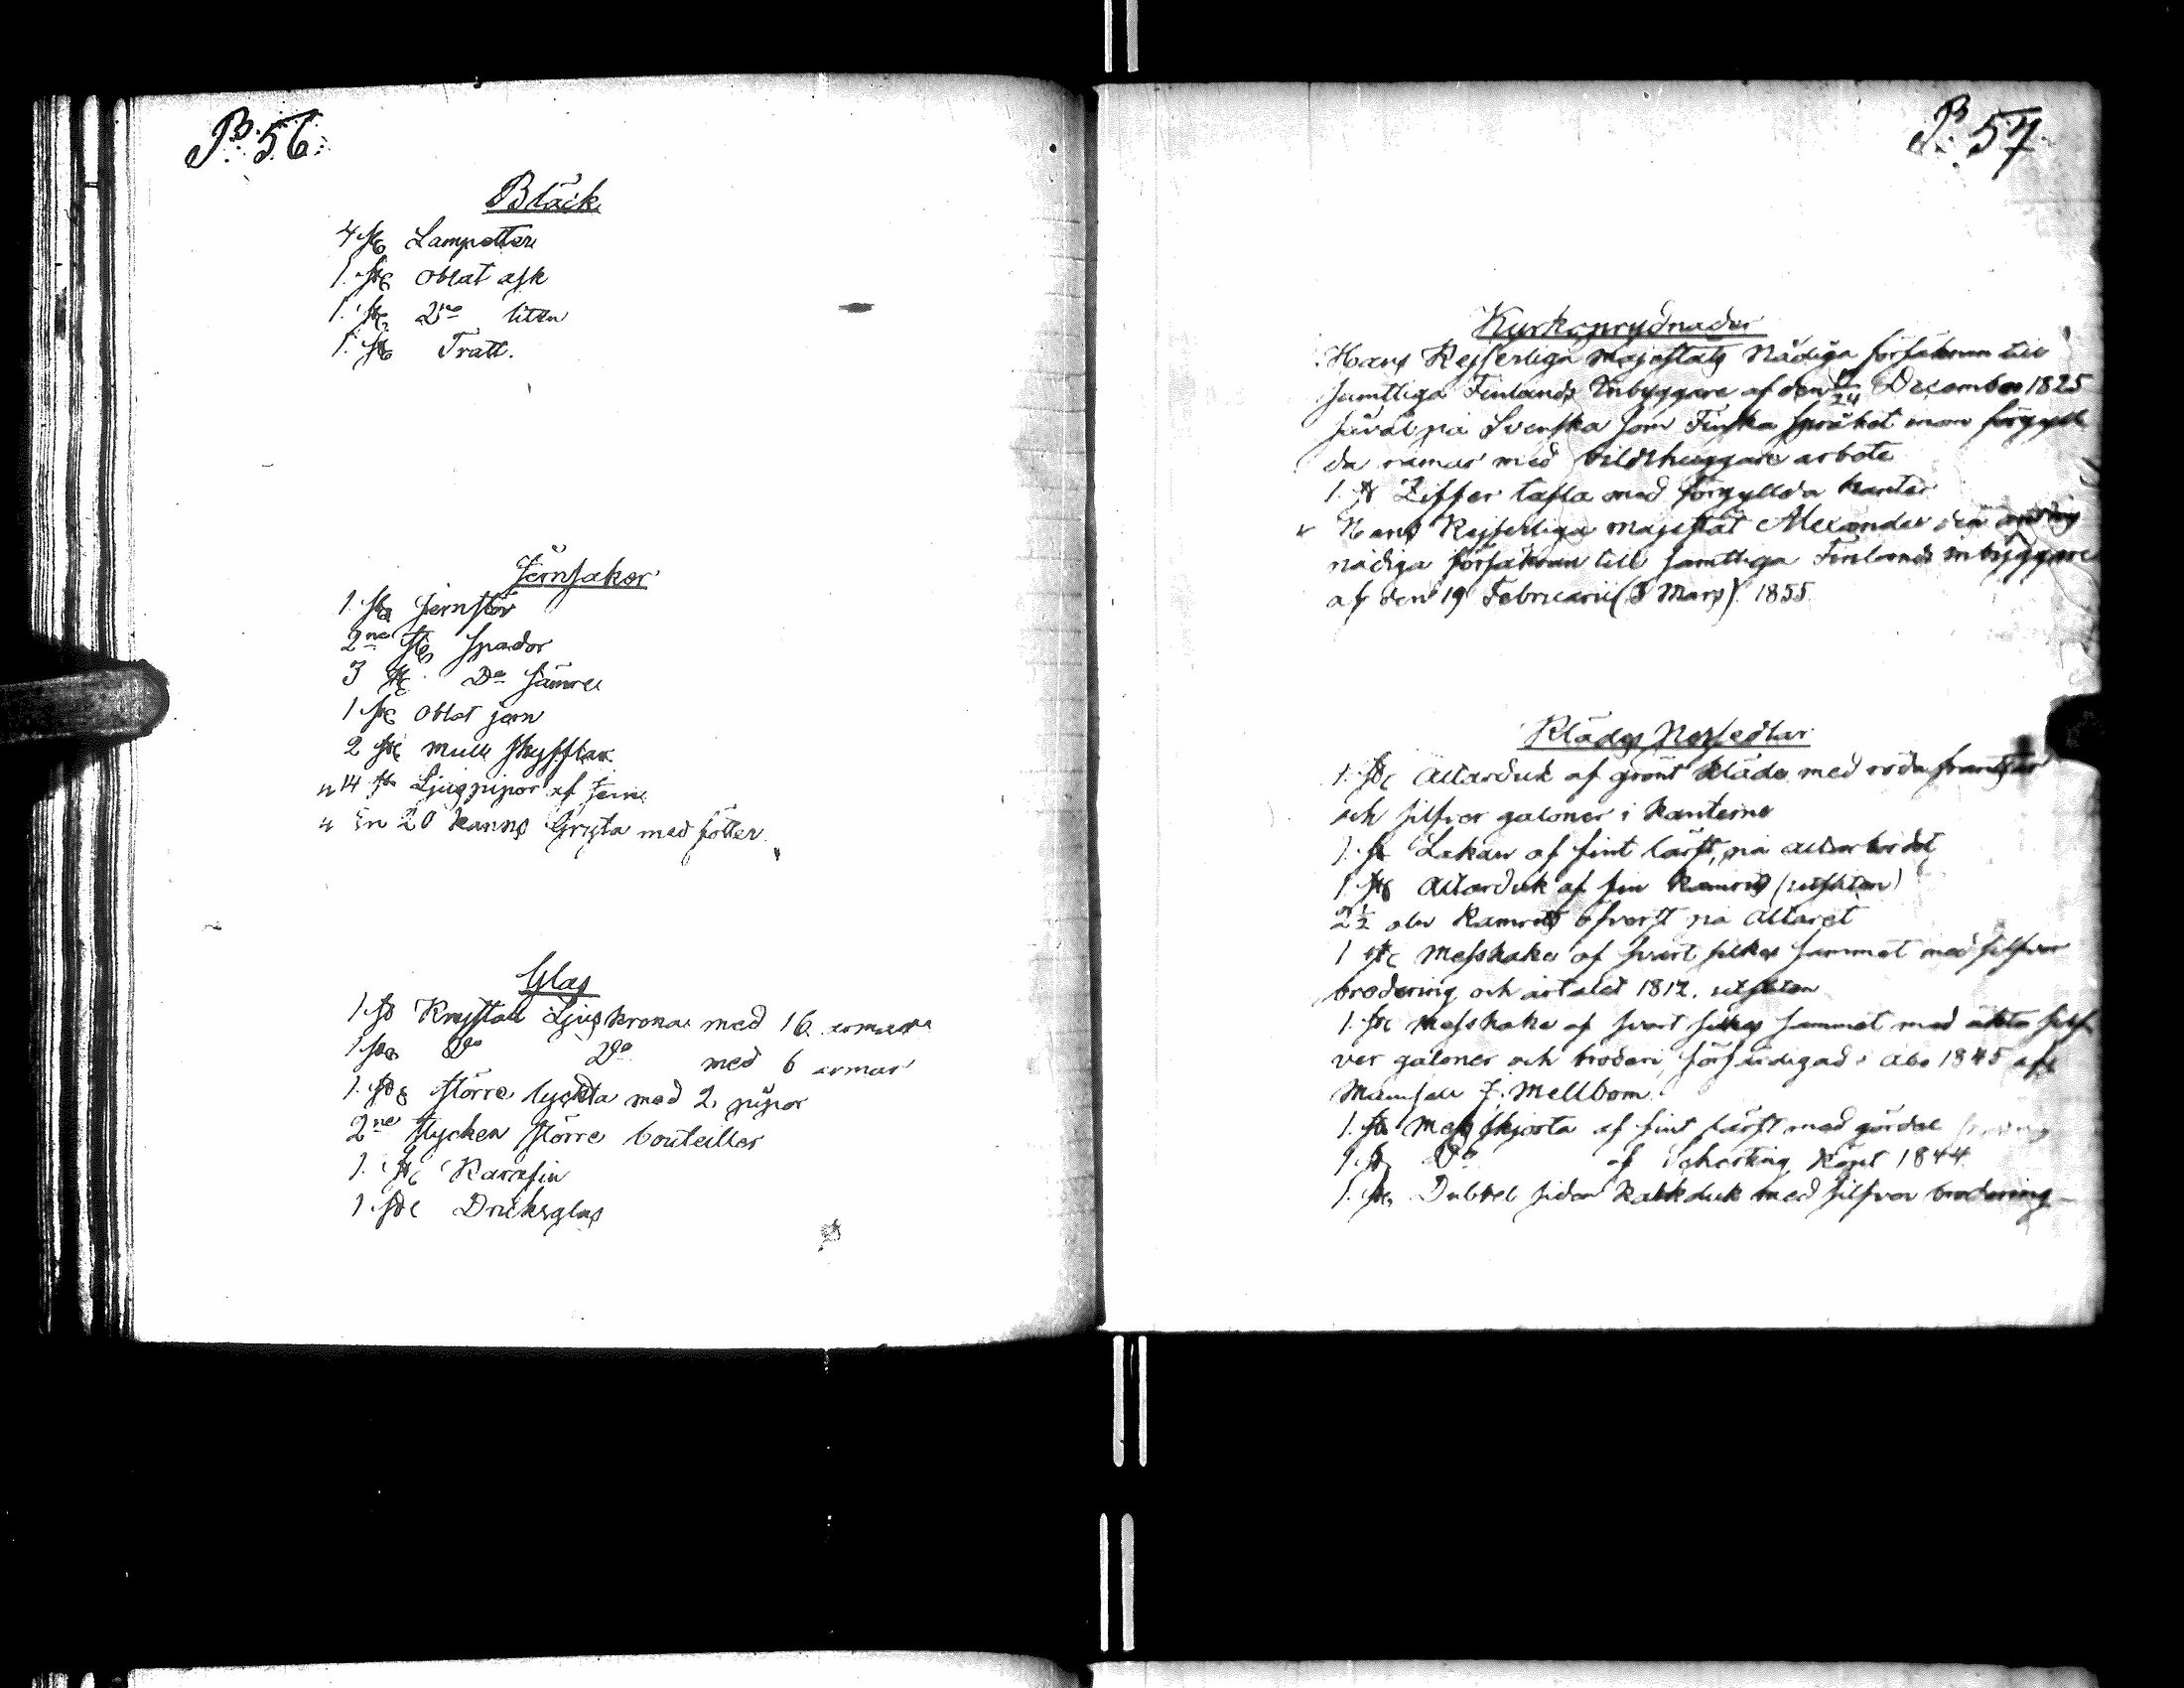 P. 56.
Bläck
4 st Lampetter
1. st oblat ask
1. st Do liten
1. st Tratt.
Jernsaker
1. st jernstör
2ne st spador
3 st Do sämre
1 st oblat jern
2 st mull skyfflar
14 st Ljuspipor af Jern
En 20 kanns Gryta med fötter.
Glas
1 st Krystall Ljuskrona med 16 armar
1 st Do Do med 6 armar
1. st större lyckta med 2 pipor
2ne stycken större bouteiller
1. st Karafin
1 st Dricksglas
P. 57.
Kyrkoprydnader
Hans Kejserliga Majestäts Nådiga försäkran till
samtliga Finlands Inbyggare af den 12/24 December 1825
såväl på Svenska som Finska språket inom förgyll
da ramar med bildthuggare arbete
1. st Ziffer tafla med förgyllda kanter
Hans Kejserliga Majestät Alexander den
nådiga försäkran till samtliga Finlands inbyggare
af den 19 Februarii (3 Mars) 1855.
Klädes Persedlar
1. st Altarduk af grönt kläde med röda frantsar
och silfver galoner i kanterne
1. st Lakan af fint lärft, på altarbordet
1 st Altarduk af fin kamrits (utsliten)
2½ aln Kamrits öfverst på Altaret
1 st Messhake af svart silkes sammet med silfver
brodering och årtalet 1812. utsliten
1. st Messhake af svart silkes sammet med äkta silf
ver galoner och broderi, förfärdigad i Åbo 1845 af
Mamsell J. Mellbom.
1. st Mess skjorta af fint lärft med gördel
1 st Do af Scherting köpt 1844.
1. st Dubbel siden Kalkduk med silfver brodering